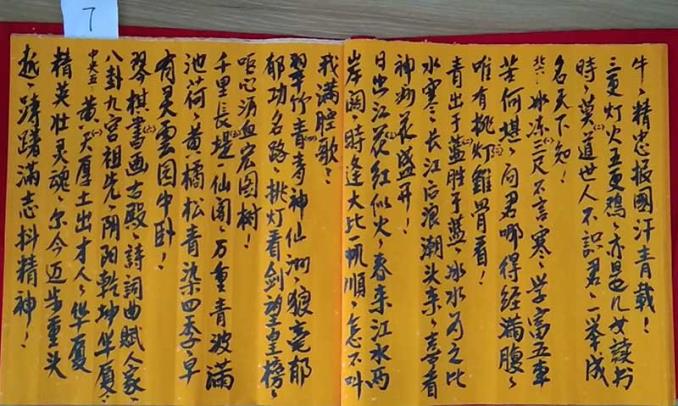 7
牛、精忠报國汗青載！
三更灯火五更鸡、亦是儿女读书
時、莫道世人不识君、一举成
名天下知！
北、冰冻三尺不言寒、学富五車
苦何堪、问君哪得经满腹、
唯有挑灯雞骨看！
青出于蓝胜于蓝、冰水为之比
水寒、长江后浪潮头来、喜看
神州花盛开！
日出江花红似火、春来江水两
岸阔、時逢大比一帆顺、怎不叫
我满腔歌！
翠竹青青神仙洞、狼毫郁
郁功名路、挑灯看剑望皇榜、
呕心沥血宏图树！
千里長堤仙阁、万重青波满
池荷、黄橘松青染四季、早
有灵雲园中卧！
琴棋書画古殿、詩詞曲赋人家、
八卦九宫祖先、阴阳乾坤华厦、
中央五、黄天厚土出才人、华厦
精英壮灵魂、尔今迈步重头
越、踌躇满志抖精神！